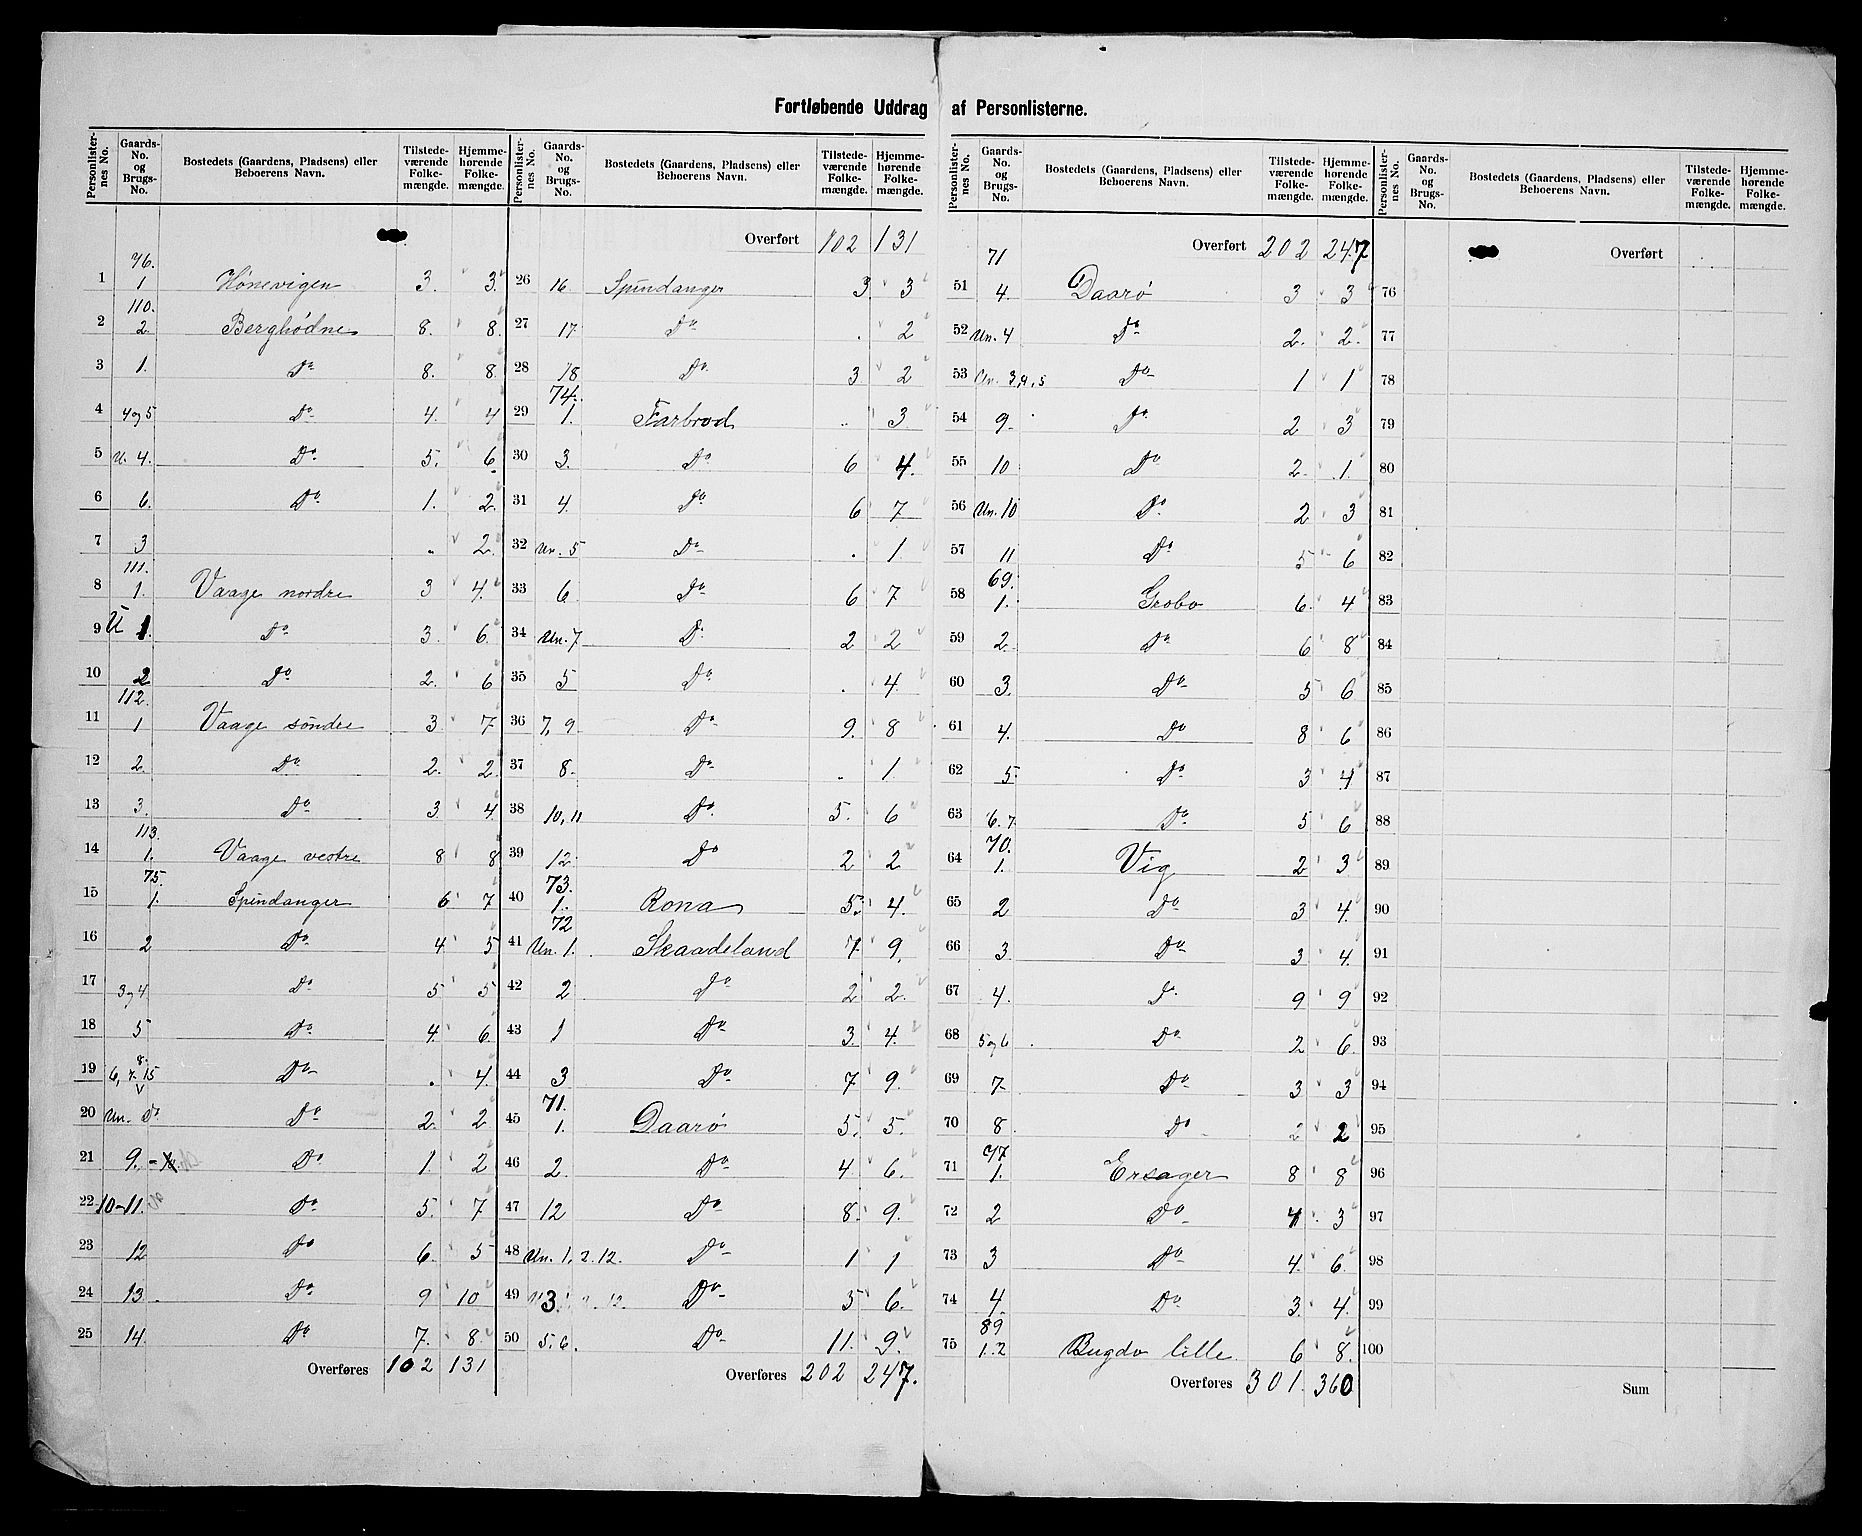 Fortløbende Uddrag af Personlisterne.
Personlisternes No. | Gaards-No. og Brugs-No. | Bostedets (Gaardens, Pladsens) eller Beboerens Navn. | Tilstedeværende Folkemængde. | Hjemmehørende Folkemængde.
1 | 76. 1 | Hønevigen | 3. | 3
2 | 110. 2. | Berghødne | 8. | 8.
3 | 1. | Do | 8. | 8
4 | 4og5 | Do | 4. | 4
5 | U. 4. | Do | 5. | 6
6 | 6. | Do | 1. | 2.
7 | 3 | | . | 2.
8 | 111. 1. | Vaage nordre | 3 | 4.
9 | U 1. | Do | 3. | 6.
10 | 2 | Do | 2. | 6
11 | 112. 1 | Vaage søndre | 3 | 7
12 | 2. | Do | 2. | 2.
13 | 3. | Do | 3 | 4.
14 | 113. 1. | Vaage vestre | 8 | 8
15 | 75. 1. | Spindanger | 6 | 7
16 | 2 | Do | 4 | 5
17 | 3og4 | Do | 5 | 5
18 | 5 | Do | 4. | 6.
19 | 6, 7. 8. 15 | Do | . | 4.
20 | Un. Do | Do | 2. | 2
21 | 9. | Do | 1 | 2
22 | 10-11. | Do | 5. | 7
23 | 12 | Do | 6. | 5
24 | 13. | Do | 9 | 10
25 | 14. | Do | 7. | 8.
Overføres 102 131
Personlisternes No. | Gaards-No. og Brugs-No. | Bostedets (Gaardens, Pladsens) eller Beboerens Navn. | Tilstedeværende Folkemængde. | Hjemmehørende Folkemængde.
Overført 102 131
26 | 16. | Spindanger | 3 | 3
27 | 17. | Do | . | 2
28 | 18 | Do | 3 | 2
29 | 74. 1. | Farbrod | .. | 3
30 | 3. | Do | 6 | 4.
31 | 4. | Do | 6 | 7
32 | Un. 5 | Do | . | 1
33 | 6 | Do | 6 | 7
34 | Un. 7 | Do | 2 | 2
35 | 5 | Do | . | 4.
36 | 7, 9 | Do | 9. | 8
37 | 8. | Do | . | 1.
38 | 10, 11 | Do | 5. | 6
39 | 12. | Do | 2 | 2
40 | 73. 1. | Rona | 5. | 4.
41 | 72 Un. 1. | Skaadeland | 7. | 9.
42 | 2 | Do | 2 | 2.
43 | 1 | Do | 3. | 4.
44 | 3 | Do | 7 | 9.
45 | 71. 1. | Daarø | 5. | 5.
46 | 2. | Do | 4 | 6.
47 | 12 | Do | 8. | 9.
48 | Un. 1, 2. 12. | Do | 1 | 1
49 | 3. | Do | 5 | 6.
50 | 5. 6 | Do | 11. | 9.
Overføres 202 247.
Personlisternes No. | Gaards-No. og Brugs-No. | Bostedets (Gaardens, Pladsens) eller Beboerens Navn. | Tilstedeværende Folkemængde. | Hjemmehørende Folkemængde.
Overført 202 247
51 | 71 4. | Daarø | 3 | 3
52 | Un. 4 | Do | 2. | 2.
53 | Un. 3, 4, 5 | Do | 1 | 1
54 | 9. | Do | 2 | 3
55 | 10 | Do | 2. | 1.
56 | Un. 10 | Do | 2 | 3
57 | 11 | Do | 5 | 6
58 | 69. 1. | Grobo | 6. | 4
59 | 2. | Do | 6 | 8
60 | 3. | Do | 5 | 6
61 | 4. | Do | 8 | 6
62 | 5. | Do | 3 | 4
63 | 6. 7. | Do | 5 | 6
64 | 70. 1. | Vig | 2 | 3
65 | 2 | Do | 3 | 4.
66 | 3 | Do | 3 | 4.
67 | 4. | Do | 9 | 9
68 | 5og6 | Do | 2 | 6.
69 | 7. | Do | 3 | 3
70 | 8 | Do | 2 | 2
71 | 77 1. | Ersager | 8 | 8
72 | 2 | Do | 4 | 3
73 | 3 | Do | 4. | 6.
74 | 4. | Do | 3. | 4.
75 | 89 1.2 | Bugdø lille. | 6 | 8.
Overføres 301. 360
Personlisternes No. | Gaards-No. og Brugs-No. | Bostedets (Gaardens, Pladsens) eller Beboerens Navn. | Tilstedeværende Folkemængde. | Hjemmehørende Folkemængde.
Overført
76
77
78
79
80
81
82
83
84
85
86
87
88
89
90
91
92
93
94
95
96
97
98
99
100
Sum